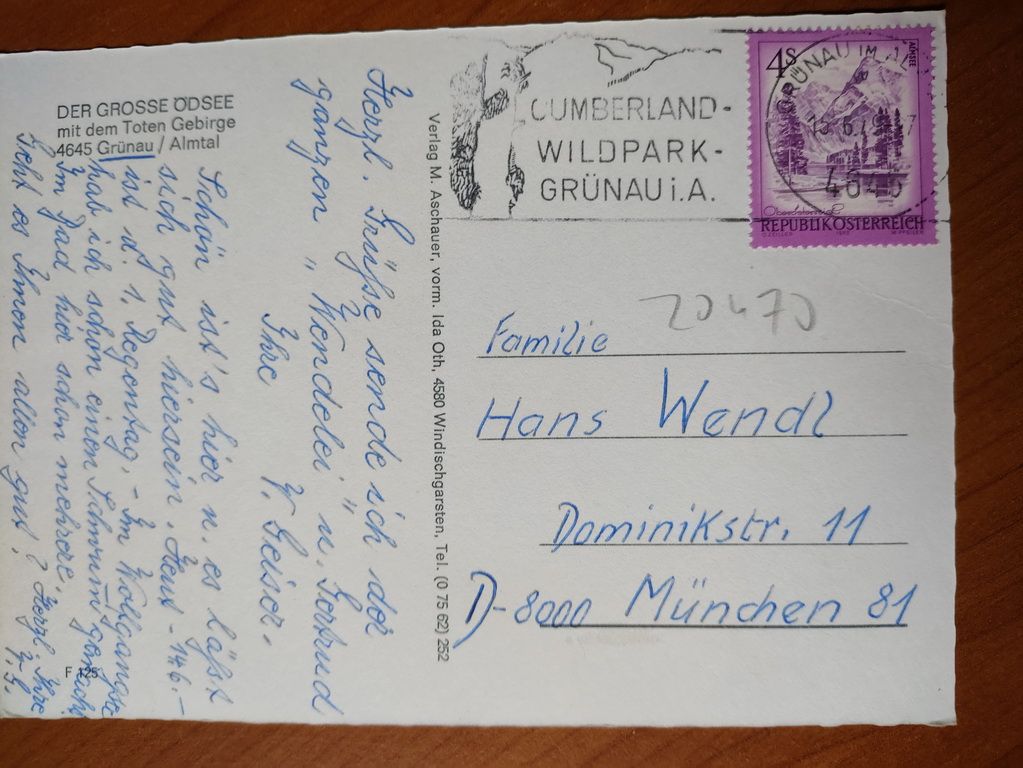 DER GROSSE ÖDSEE
mit dem Toten Gebirge
4645 Grünau / Almtal
Herzl. Grüße sende ich der
ganzen „Wendelei" u.
Ihre
Schön ist's hier u. es läßt
sich gut hiersein. Heut - 14.6. -
ist d. 1. Regentag, - Im Wolfgangsee
hab ich schon einen Schwumm gemacht
im Bad hier schon mehrere.
Geht es Ihnen allen gut? Herzl. Ihre
F 125
Verlag M. Aschauer, vorm. Ida Oth, 4580 Windischgarsten, Tel. (0 75 62) 252
CUMBERLAND-
WILDPARK-
GRÜNAU i.A.
4S
GRÜNAU IM
4645
REPUBLIK ÖSTERREICH
20470
Familie
Hans Wendl
Dominikstr. 11
D-8000 München 81